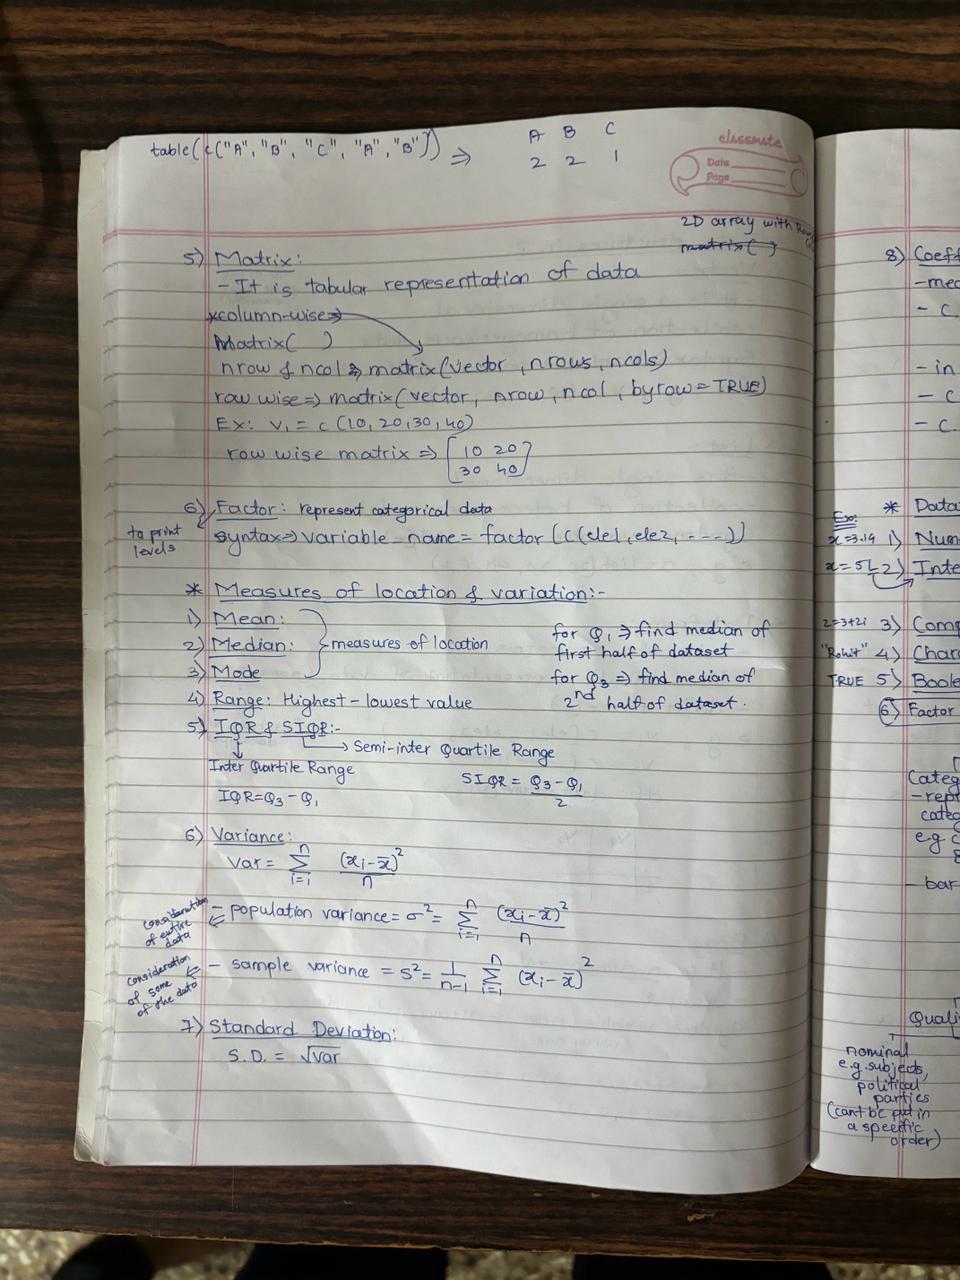 table(c("A", "B", "C", "A", "B")) ⇒ A B C
2 2 1
classmate
Date
Page
2D array with
matrix( )
5) Matrix:
- It is tabular representation of data
column-wise ⇒
Matrix( )
nrow & ncol ⇒ matrix(vector, nrows, ncols)
row wise ⇒ matrix(vector, nrow, ncol, byrow = TRUE)
Ex: v₁ = c (10, 20, 30, 40)
row wise matrix ⇒ [10 20
30 40]
6) Factor: represent categorical data
to print levels
syntax ⇒ variable_name = factor [c(ele1, ele2, ----)]
* Measures of location & variation:-
1) Mean:
2) Median: } measures of location
3) Mode
for Q₁ ⇒ find median of
first half of dataset
for Q₃ ⇒ find median of
2nd half of dataset.
4) Range: Highest - lowest value
5) IQR & SIQR:-
→ Semi-inter Quartile Range
Inter Quartile Range
IQR = Q₃ - Q₁
SIQR = Q₃ - Q₁
2
6) Variance:
Var = n Σ i=1 (xᵢ - x̄)²
n
consideration
of entire
data
- population variance = σ² = n Σ i=1 (xᵢ - x̄)²
n
consideration
of some
of the data
- sample variance = S² = 1/n-1 n Σ i=1 (xᵢ - x̄)²
7) Standard Deviation:
S.D. = √var
8) Coeff
- mec
- c.
- in
- c
- c.
* Data
Ex:
x=3.14 1) Num
x=5L 2) Inte
z=3+2i 3) Comp
"Rohit" 4) Char
TRUE 5) Boole
6) Factor
Categ
- repr
categ
e.g c
- bar
Quali
nominal
e.g. subjects,
political
parties
(cant be put in
a specific
order)